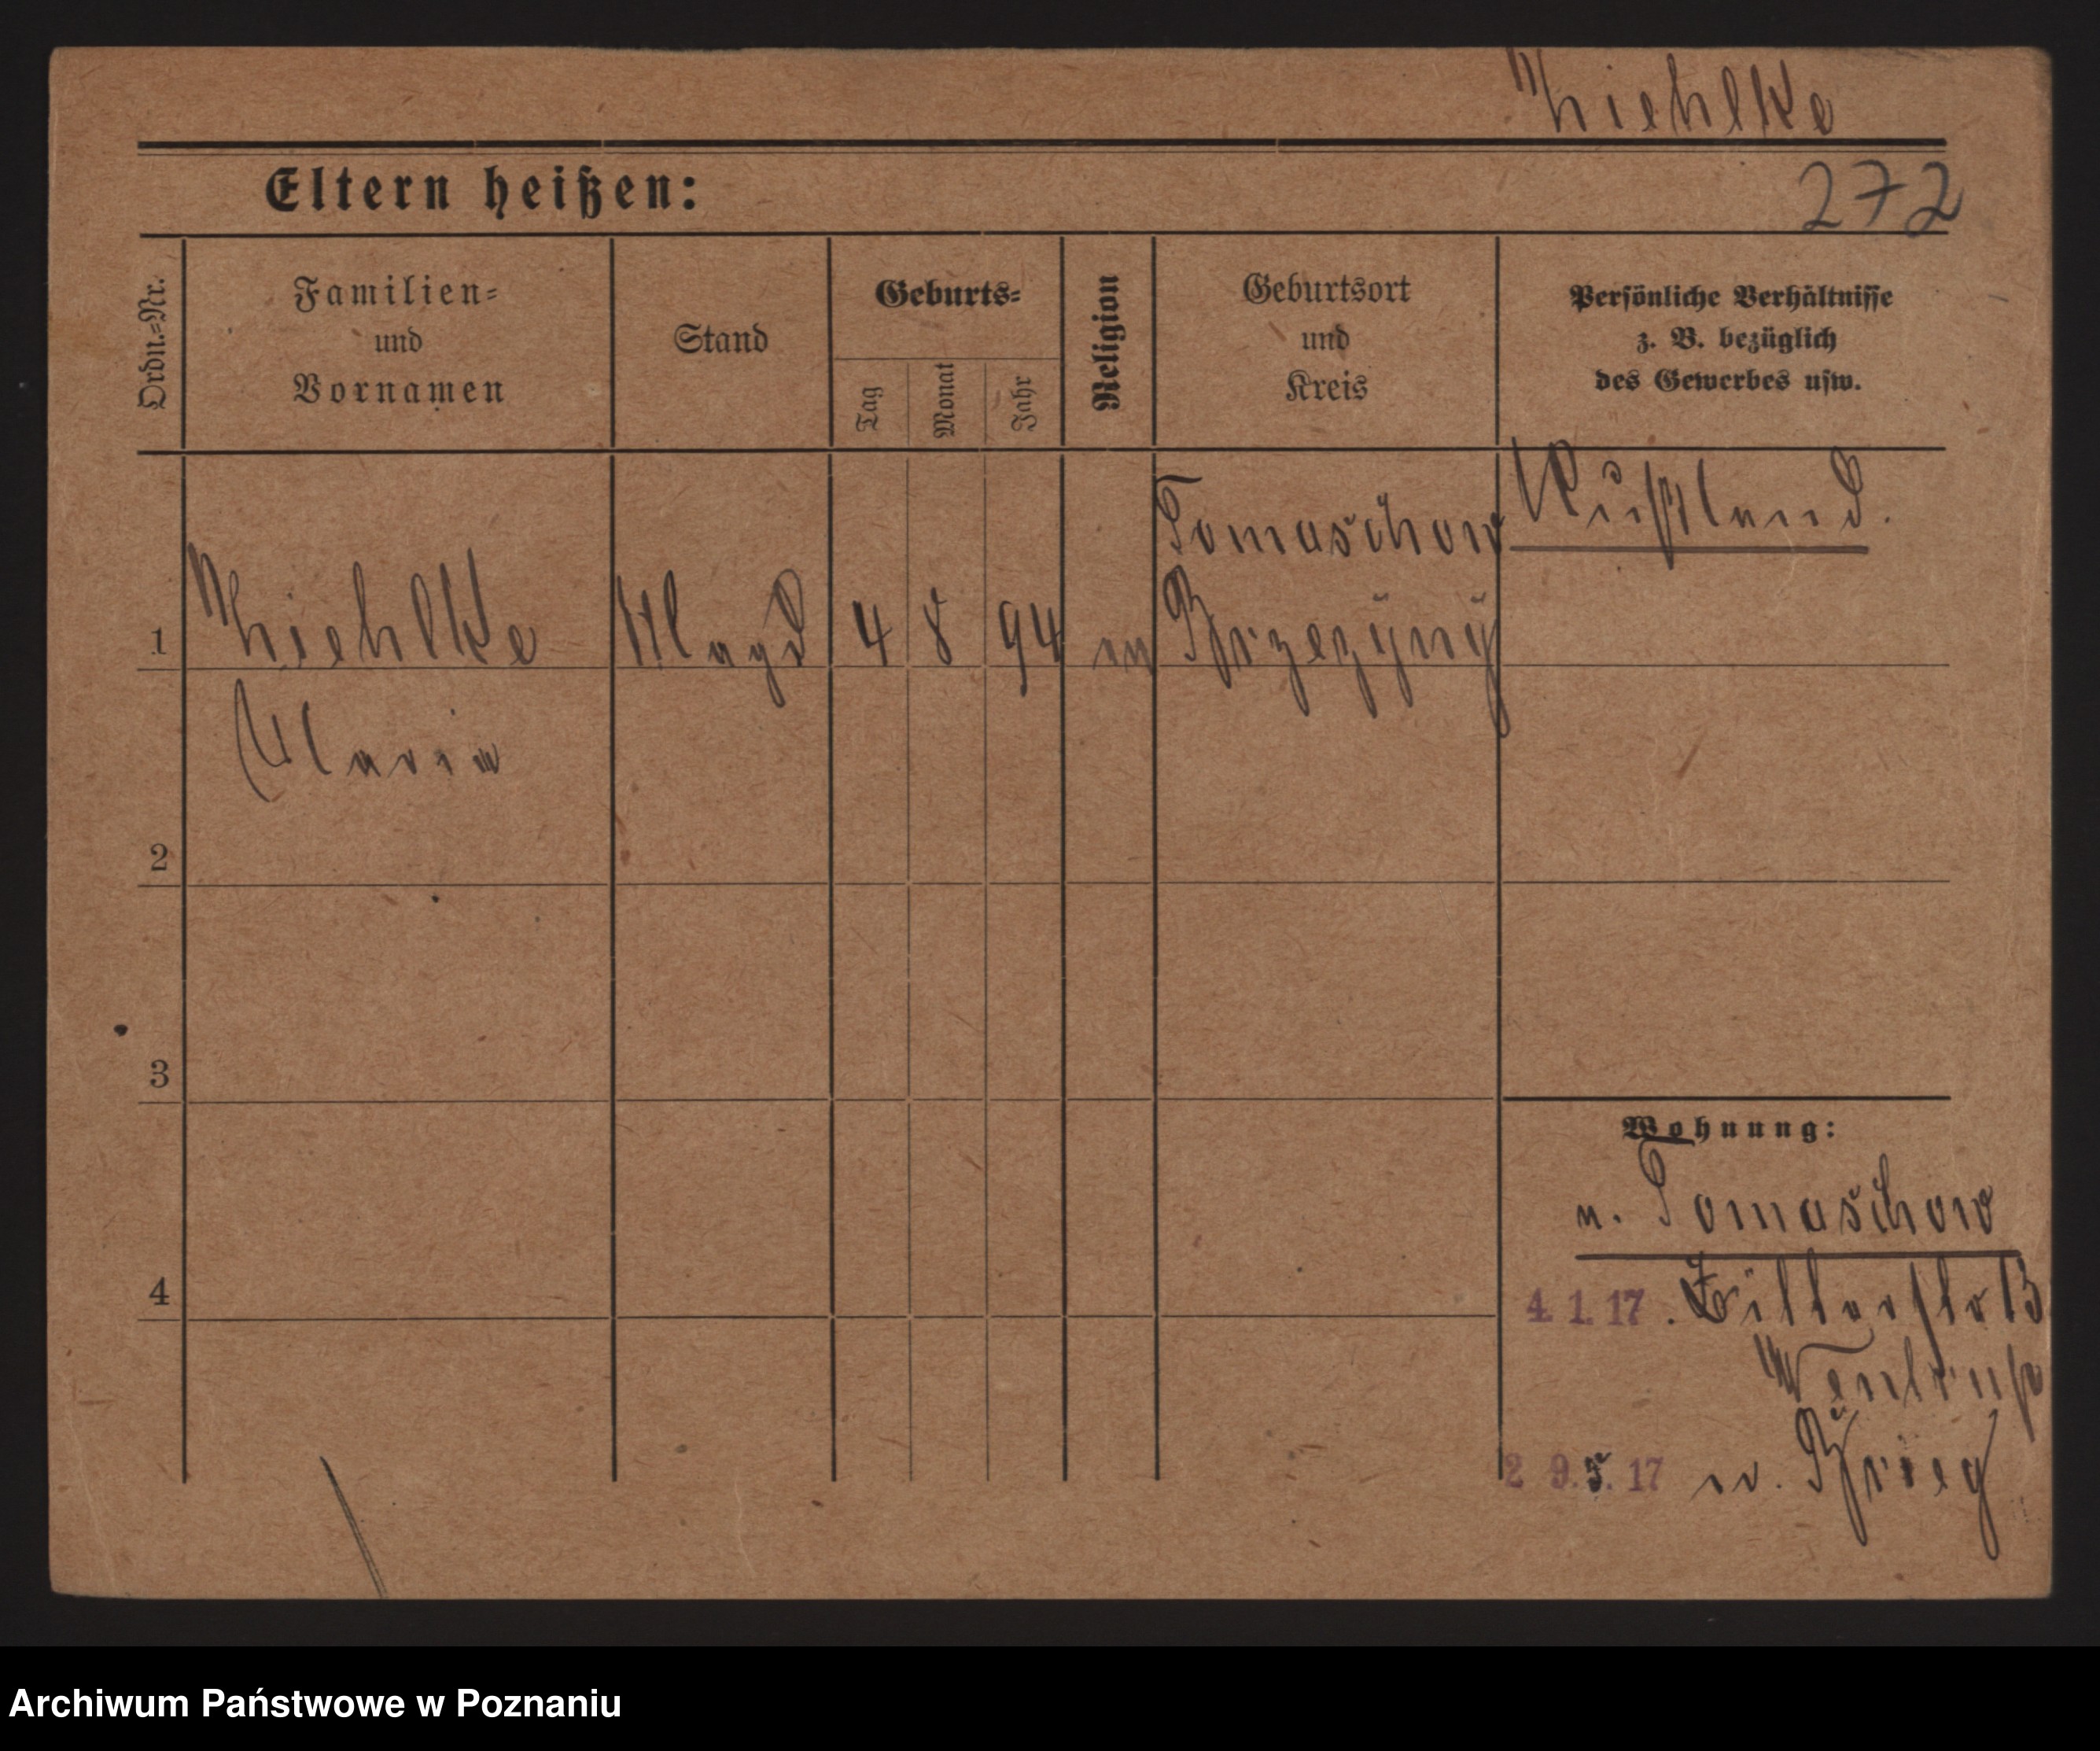 Miehlke
Eltern heißen:
272
Ordn.=Nr.
Familien=
und
Vornamen
Stand
Geburts=
Tag
Monat
Jahr
Religion
Geburtsort
und
Kreis
Persönliche Verhältnisse
z. B. bezüglich
des Gewerbes usw.
Tomaschow
Rußland.
1
Miehlke
Magd
4
8
94
ev
Brzezyny
Maria
2
3
Wohnung:
v. Tomaschow
4
4. 1. 17. Ritterstr 13
29. 5. 17 n. Brieg
Archiwum Państwowe w Poznaniu